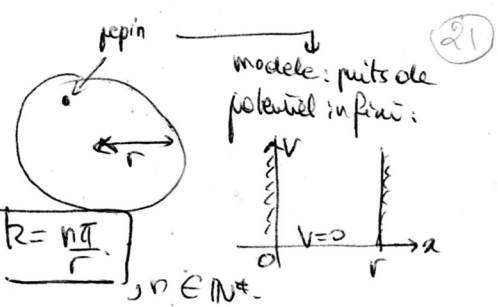 pepin
21
modele: puits de
potentiel infini:
r
V
k = nπ/r.
V=0
x
0
r
, n ∈ ℕ*.